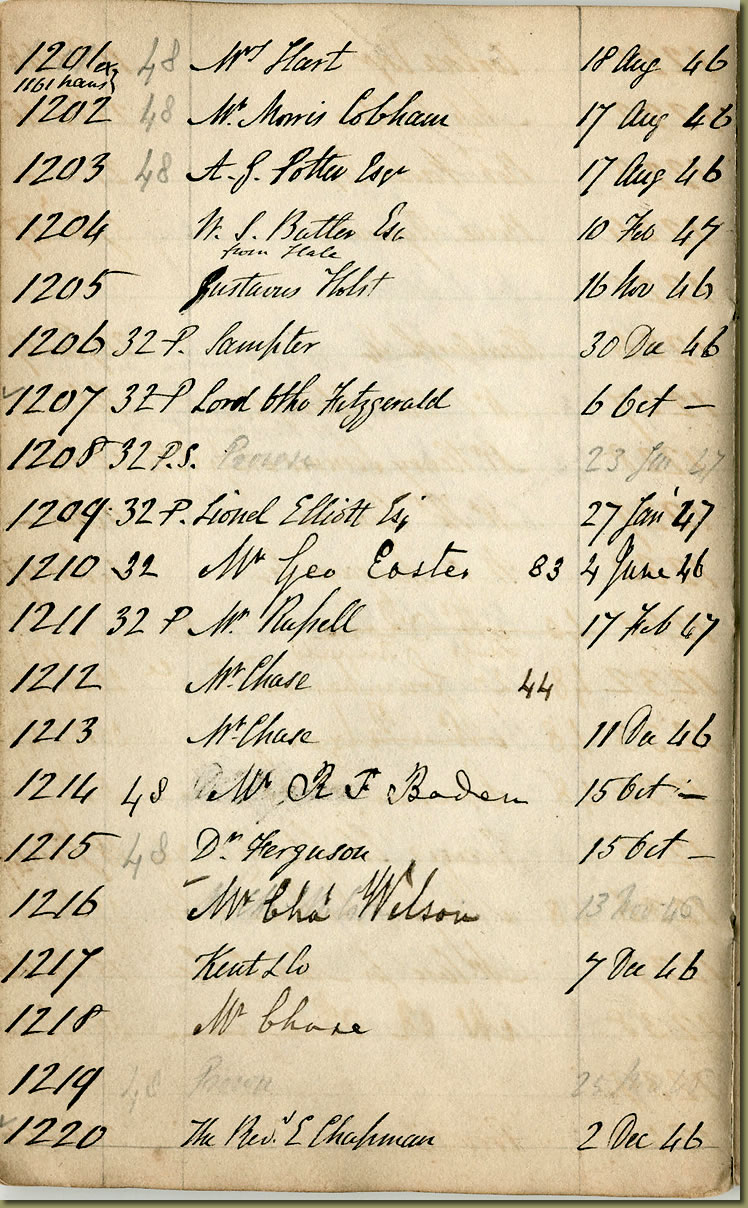 1201 ex 48 Mrs Hart 18 Aug 46
1161 hands
1202 48 Mr Morris Cobham 17 Aug 46
1203 48 A. G. Potter Esqr 17 Aug 46
1204 W. S. Butler Esq 10 Feb 47
from Hale
1205 Gustavus Holst 16 Nov 46
1206 32 P. Sampter 30 Dec 46
1207 32 P Lord Otho Fitzgerald 6 Oct —
1208 32 P.S. 23 Jan 47
1209 32 P. Lionel Elliott Esq 27 Jan 47
1210 32 Mr Geo Easter 83 4 June 46
1211 32 P Mr Russell 17 Feb 47
1212 Mr Chase 44
1213 Mr Chase 11 Dec 46
1214 48 Mr R F Boden 15 Oct —
1215 48 Dr Ferguson 15 Oct —
1216 Mr Chas Wilson 13 Nov 46
1217 Kent & Co 7 Dec 46
1218 Mr Chase
1219 48
1220 The Revd. E Chapman 2 Dec 46